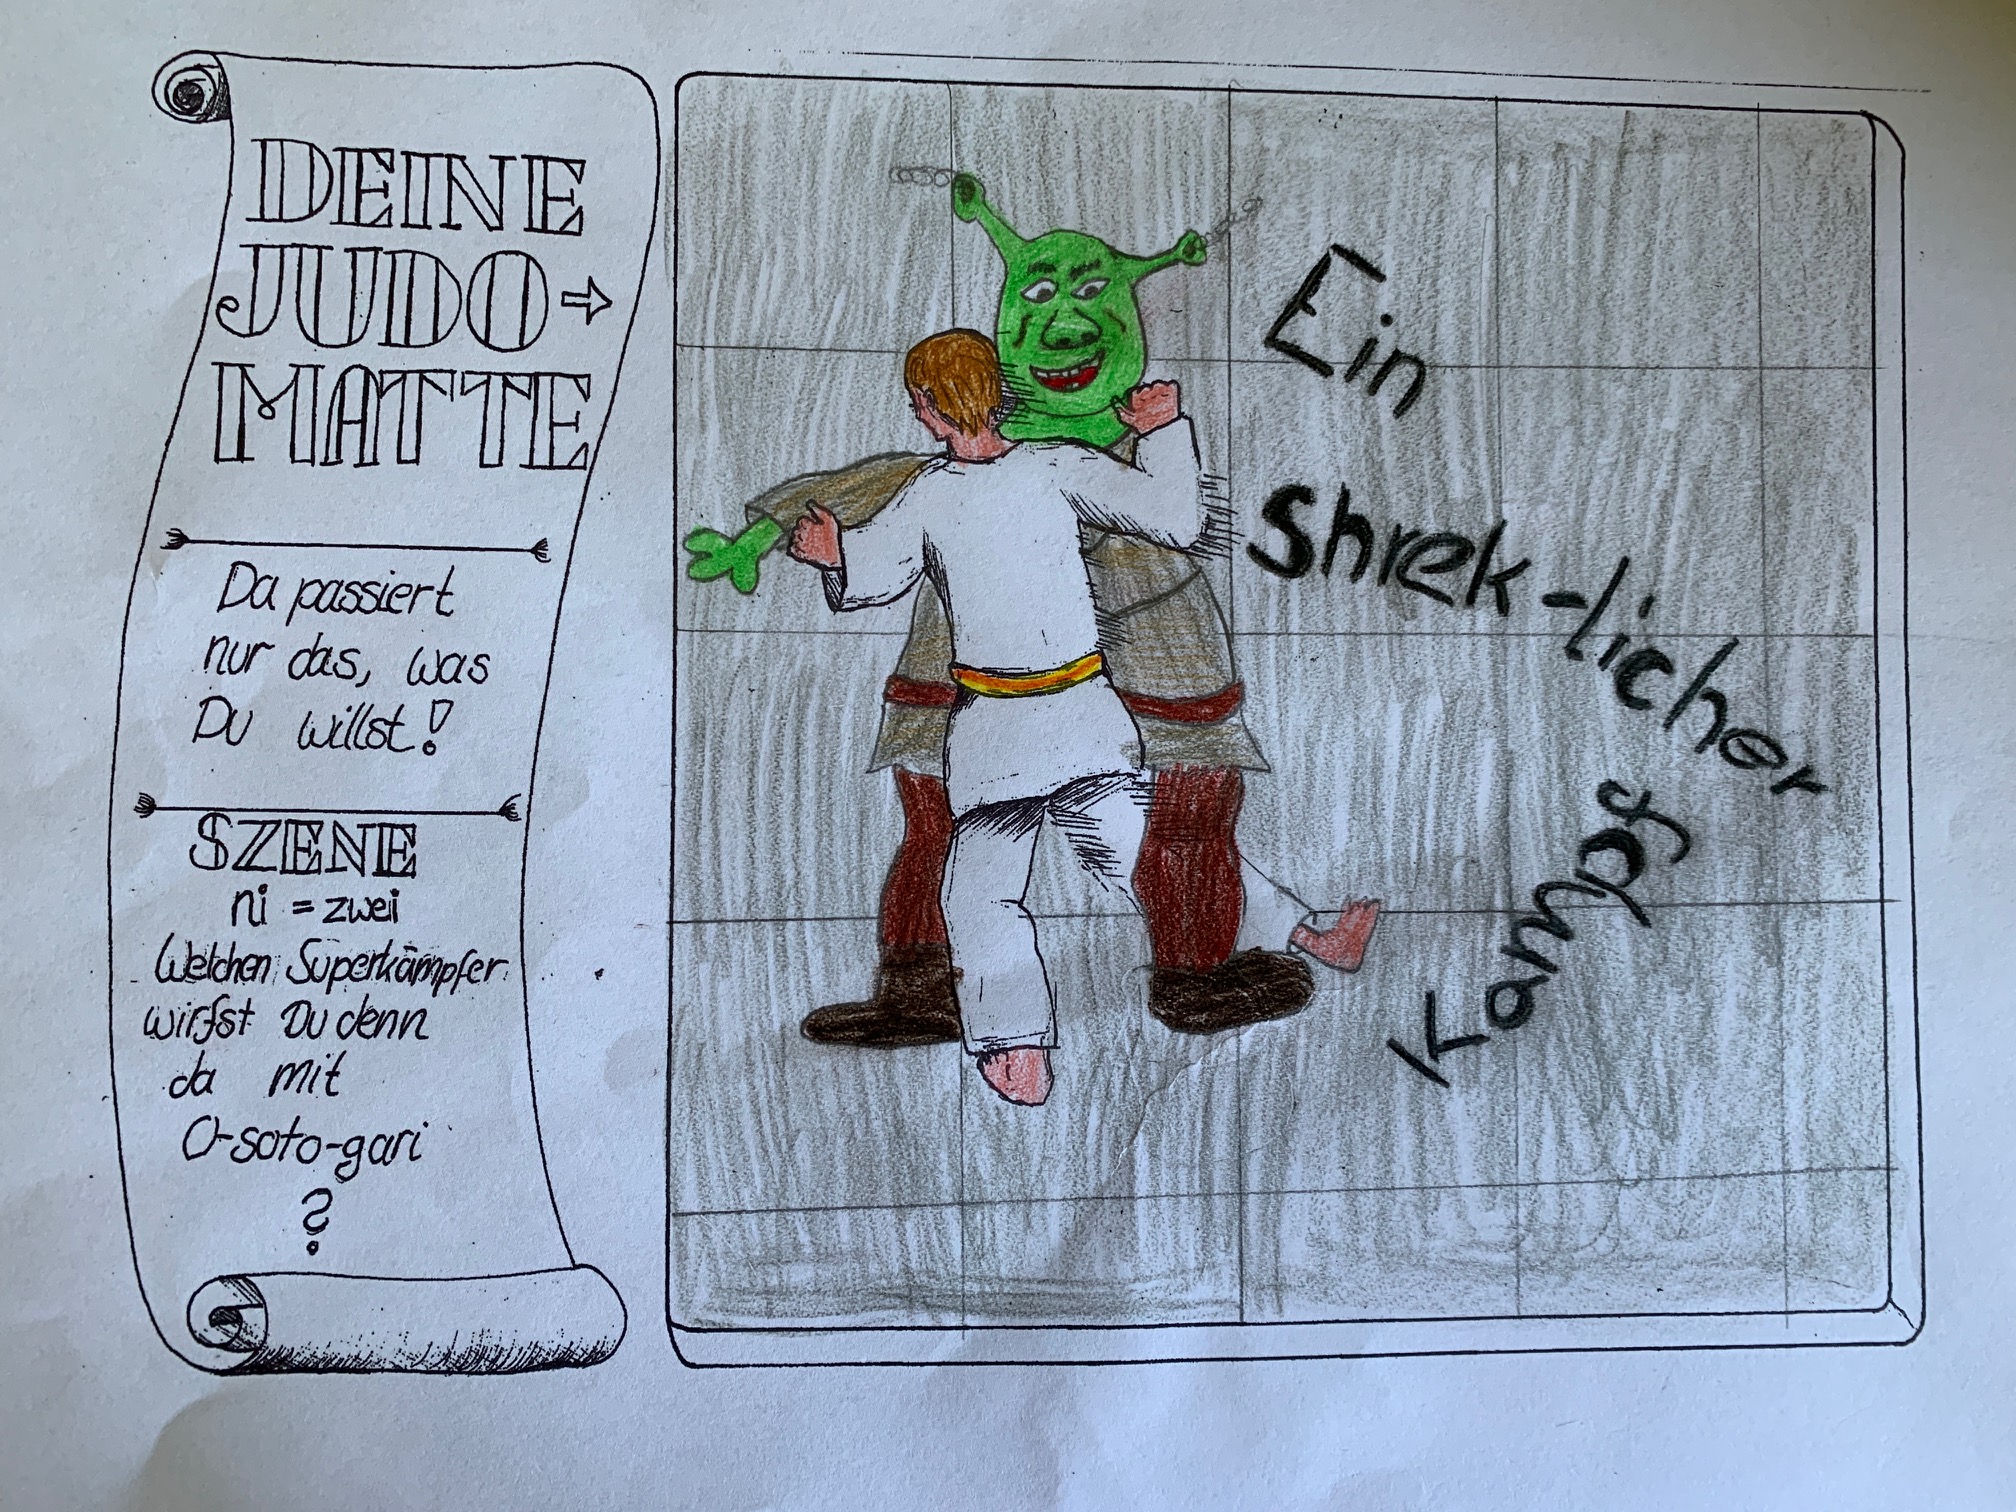 DEINE
JUDO
MATTE
Da passiert
nur das, was
Du willst!
SZENE
ni = zwei
Welchen Superkämpfer
wirfst Du denn
da mit
O-soto-gari
?
Ein
Shrek-licher
Kampf